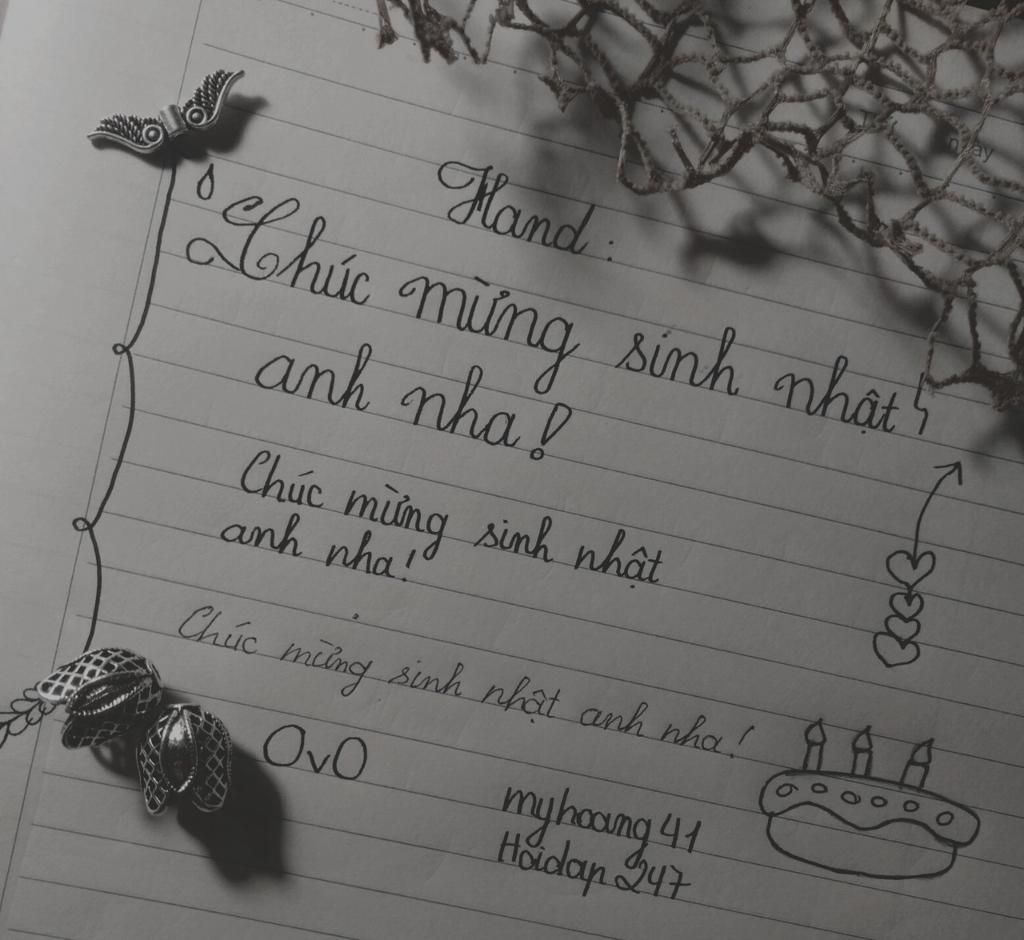 Hand:
Chúc mừng sinh nhật
anh nha!
Chúc mừng sinh nhật
anh nha!
Chúc mừng sinh nhật anh nha!
OvO
myhoang41
Hoidap 247